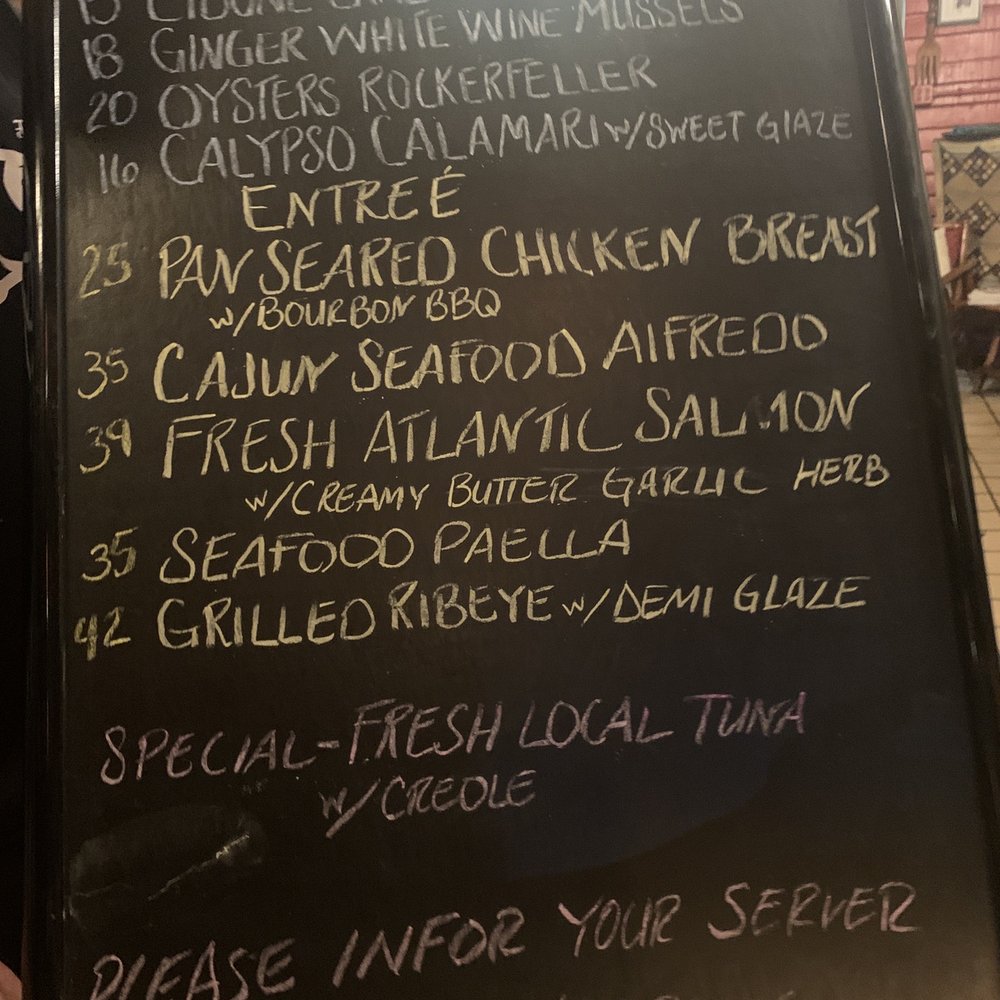 18 GINGER WHITE WINE MUSSELS
20 OYSTERS ROCKERFELLER
16 CALYPSO CALAMARI W/SWEET GLAZE
ENTREÉ
25 PAN SEARED CHICKEN BREAST
W/BOURBON BBQ
35 CAJUN SEAFOOD ALFREDO
39 FRESH ATLANTIC SALMON
W/CREAMY BUTTER GARLIC HERB
35 SEAFOOD PAELLA
42 GRILLED RIBEYE W/DEMI GLAZE
SPECIAL-FRESH LOCAL TUNA
W/CREOLE
PLEASE INFOR YOUR SERVER